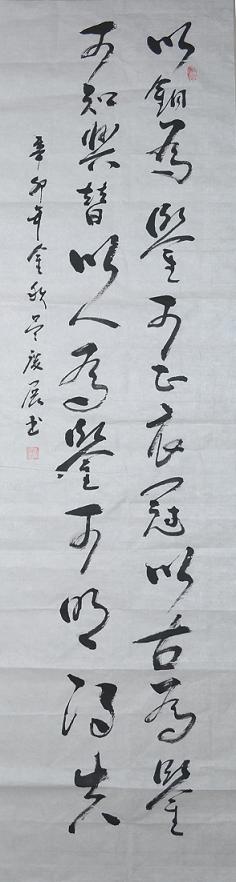 以銅為鑒可正衣冠以古為鑒
可知興替以人為鑒可明得失
辛卯年金秋吴廣展书